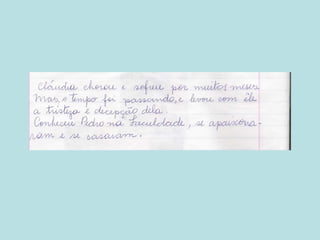 Cláudia chorou e sofreu por muitos meses
Mas, o tempo foi passando, e levou com êle
a tristeza e decepção dela.
Conheceu Pedro na Faculdade, se apaixona-
ram e se casaram.